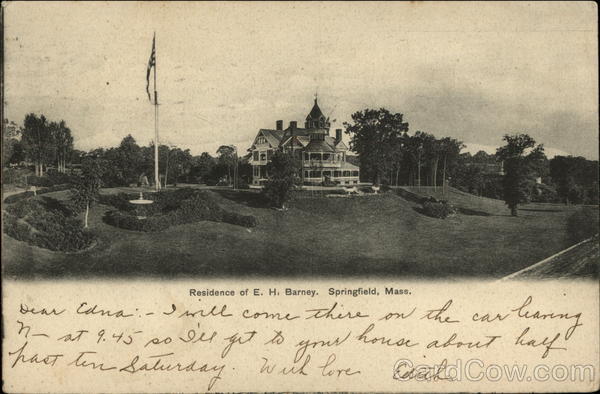 Residence of E. H. Barney. Springfield, Mass.
Dear Edna:- I will come there on the car leaving
N- at 9.45 so I'll get to your house about half
past ten Saturday. With love Edith
CardCow.com